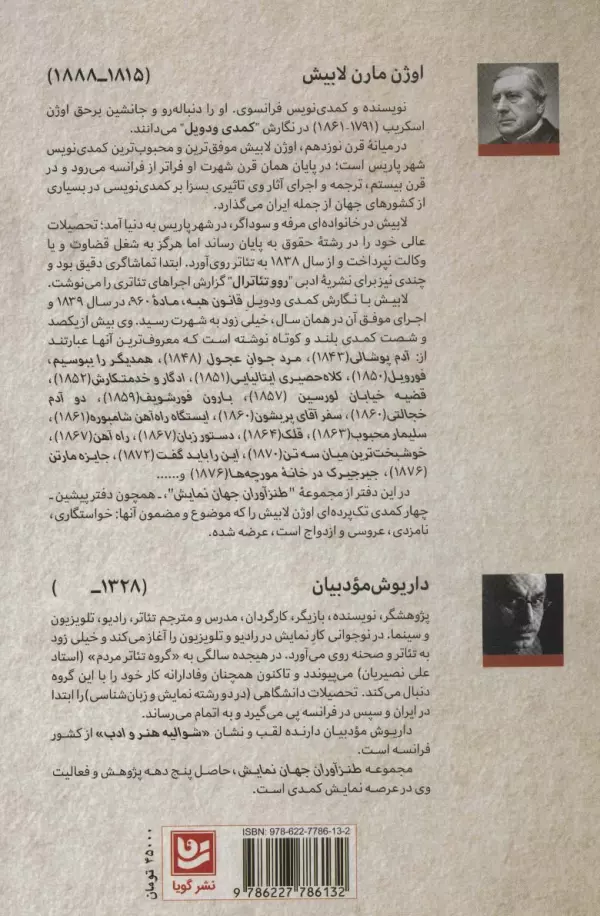 اوژن مارن لابیش (۱۸۱۵ـ۱۸۸۸)
نویسنده و کمدی‌نویس فرانسوی. او را دنباله‌رو و جانشین برحق اوژن
اسکریب (۱۷۹۱-۱۸۶۱) در نگارش "کمدی ودویل" می‌دانند.
در میانهٔ قرن نوزدهم، اوژن لابیش موفق‌ترین و محبوب‌ترین کمدی‌نویس
شهر پاریس است؛ در پایان همان قرن شهرت او فراتر از فرانسه می‌رود و در
قرن بیستم، ترجمه و اجرای آثار وی تاثیری بسزا بر کمدی‌نویسی در بسیاری
از کشورهای جهان از جمله ایران می‌گذارد.
لابیش در خانواده‌ای مرفه و سوداگر، در شهر پاریس به دنیا آمد؛ تحصیلات
عالی خود را در رشتهٔ حقوق به پایان رساند اما هرگز به شغل قضاوت و یا
وکالت نپرداخت و از سال ۱۸۳۸ به تئاتر روی‌آورد. ابتدا تماشاگری دقیق بود و
چندی نیز برای نشریهٔ ادبی "روو تئاترال" گزارش اجراهای تئاتری را می‌نوشت.
لابیش با نگارش کمدی ودویل قانون هبه، مادهٔ ۹۶۰، در سال ۱۸۳۹ و
اجرای موفق آن در همان سال، خیلی زود به شهرت رسید. وی بیش از یکصد
و شصت کمدی بلند و کوتاه نوشته است که معروف‌ترین آنها عبارتند
از: آدم پوشالی(۱۸۴۳)، مرد جوان عجول (۱۸۴۸)، همدیگر را ببوسیم،
فورویل(۱۸۵۰)، کلاه‌حصیری ایتالیایی(۱۸۵۱)، ادگار و خدمتکارش(۱۸۵۲)،
قضیه خیابان لورسین (۱۸۵۷)، بارون فورشویف(۱۸۵۹)، دو آدم
خجالتی(۱۸۶۰)، سفر آقای پریشون(۱۸۶۰)، ایستگاه راه‌آهن شامبوره(۱۸۶۱)،
سلیمار محبوب(۱۸۶۳)، قلک(۱۸۶۴)، دستور زبان(۱۸۶۷)، راه آهن(۱۸۶۷)،
خوشبخت‌ترین میان سه تن(۱۸۷۰)، این را باید گفت(۱۸۷۲)، جایزه مارتن
(۱۸۷۶)، جیرجیرک در خانهٔ مورچه‌ها(۱۸۷۶) و......
در این دفتر از مجموعهٔ "طنزآوران جهان نمایش"، ـ همچون دفتر پیشین ـ
چهار کمدی تک‌پرده‌ای اوژن لابیش را که موضوع و مضمون آنها: خواستگاری،
نامزدی، عروسی و ازدواج است، عرضه شده.
داریوش مؤدبیان (۱۳۲۸ـ )
پژوهشگر، نویسنده، بازیگر، کارگردان، مدرس و مترجم تئاتر، رادیو، تلویزیون
و سینما. در نوجوانی کار نمایش در رادیو و تلویزیون را آغاز می‌کند و خیلی زود
به تئاتر و صحنه روی می‌آورد. در هیجده سالگی به «گروه تئاتر مردم» (استاد
علی نصیریان) می‌پیوندد و تاکنون همچنان وفادارانه کار خود را با این گروه
دنبال می‌کند. تحصیلات دانشگاهی (در دو رشته نمایش و زبان‌شناسی) را ابتدا
در ایران و سپس در فرانسه پی می‌گیرد و به اتمام می‌رساند.
داریوش مؤدبیان دارنده لقب و نشان «شوالیه هنر و ادب» از کشور
فرانسه است.
مجموعه طنزآوران جهان نمایش، حاصل پنج دهه پژوهش و فعالیت
وی در عرصه نمایش کمدی است.
ISBN: 978-622-7786-13-2
9 786227 786132
نشر گویا
۴۵۰۰۰ تومان